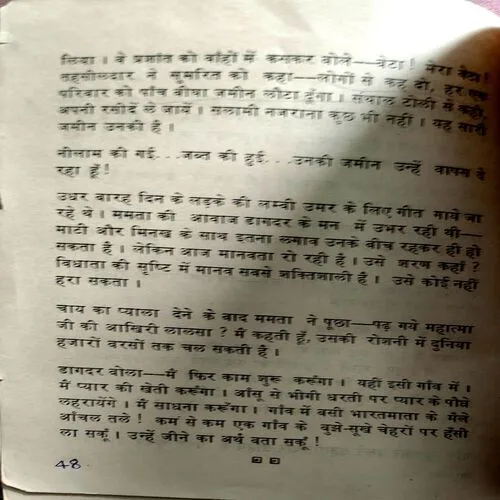 लिया । वे प्रशांत को बाँहों में कसकर बोले—बेटा ! मेरा बेटा !
तहसीलदार ने सुमरित को कहा—लोगों से कह दो, हर एक
परिवार को पाँच बीघा जमीन लौटा दूंगा । संथाल टोली से कहो,
अपनी रसीदें ले जायें । सलामी नजराना कुछ भी नहीं । यह सारी
जमीन उनकी है ।
नीलाम की गई...जब्त की हुई...उनकी जमीन उन्हें वापस दे
रहा हूँ !
उधर बारह दिन के लड़के की लम्बी उमर के लिए गीत गाये जा
रहे थे । ममता की आवाज डागदर के मन में उभर रही थी—
माटी और मिनख के साथ इतना लगाव उनके बीच रहकर ही हो
सकता है । लेकिन आज मानवता रो रही है । उसे शरण कहाँ ?
विधाता की सृष्टि में मानव सबसे शक्तिशाली है । उसे कोई नहीं
हरा सकता ।
चाय का प्याला देने के बाद ममता ने पूछा—पढ़ गये महात्मा
जी की आखिरी लालसा ? मैं कहती हूँ, उसकी रोशनी में दुनिया
हजारों बरसों तक चल सकती है ।
डागदर बोला—मैं फिर काम शुरू करूंगा । यहीं इसी गाँव में ।
मैं प्यार की खेती करूंगा । आंसू से भीगी धरती पर प्यार के पौधे
लहरायेंगे । मैं साधना करूंगा । गाँव में बसी भारतमाता के मैले
आँचल तले ! कम से कम एक गाँव के बुझे-सूखे चेहरों पर हँसी
ला सकूं । उन्हें जीने का अर्थ बता सकूं !
48